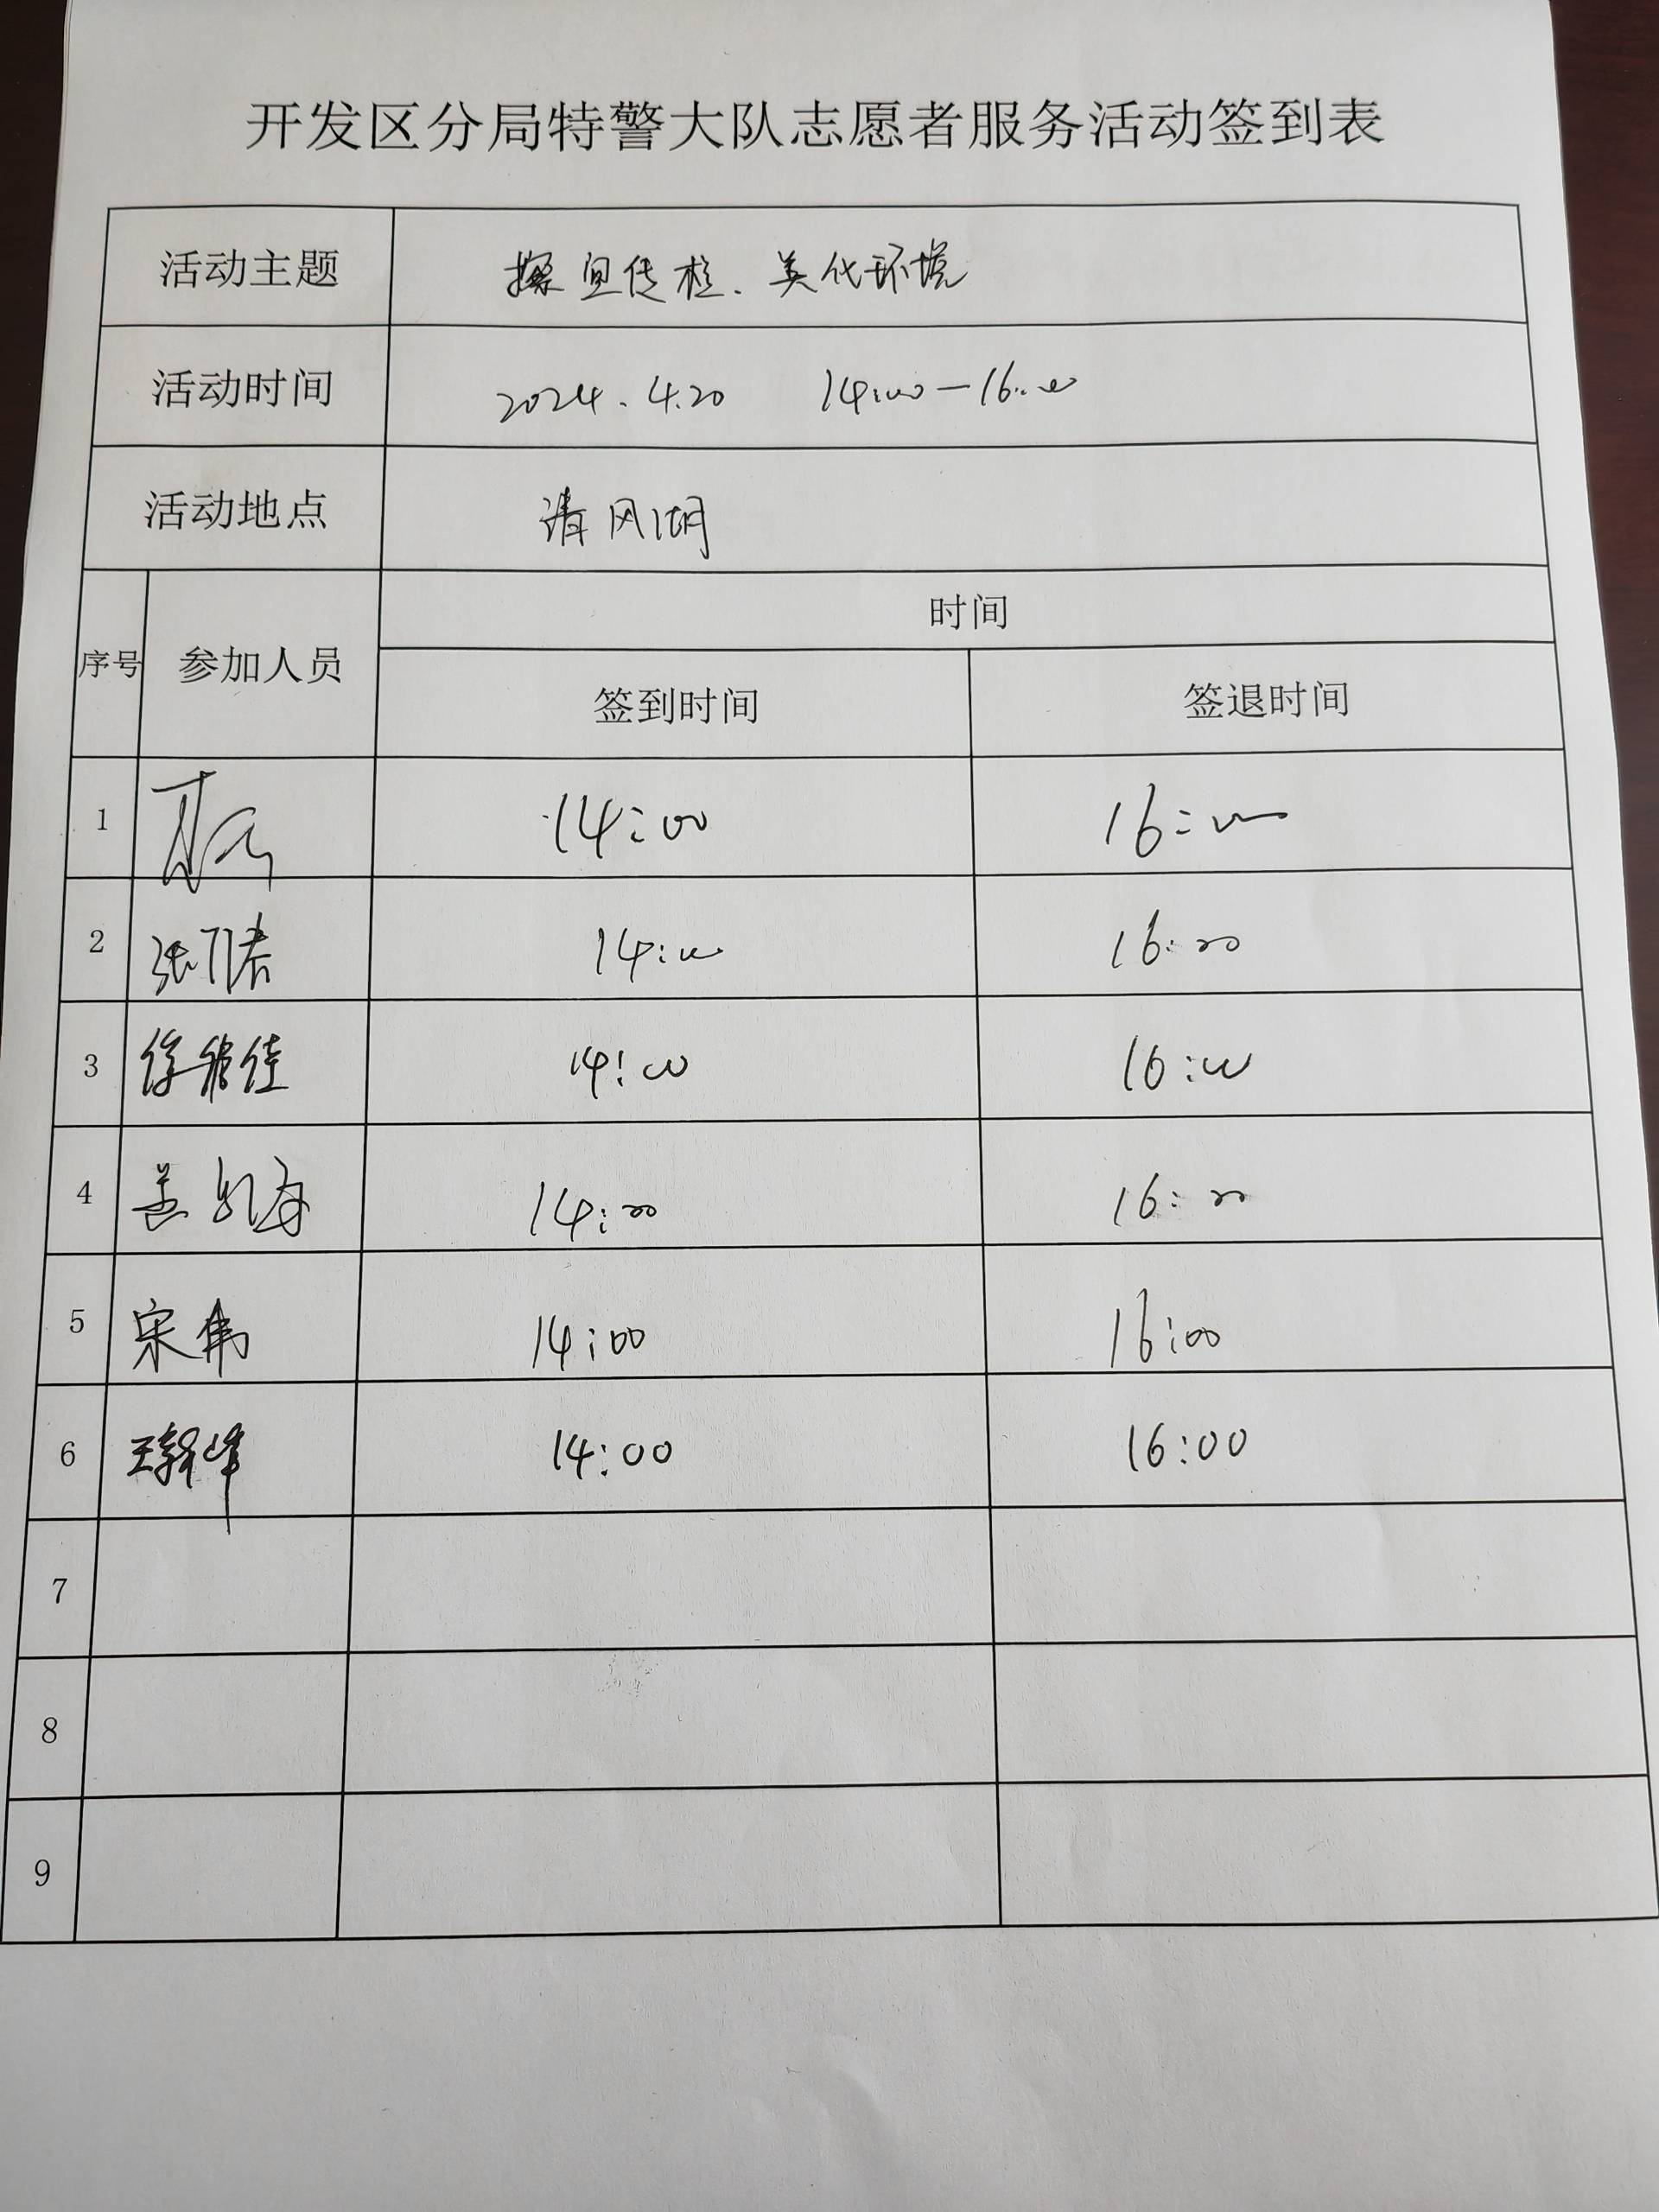 开发区分局特警大队志愿者服务活动签到表
活动主题 擦宣传栏、美化环境
活动时间 2024.4.20 14:00—16:00
活动地点 清风湖
序号 参加人员 时间
签到时间 签退时间
1 14:00 16:00
2 14:00 16:00
3 14:00 16:00
4 14:00 16:00
5 宋伟 14:00 16:00
6 14:00 16:00
7
8
9